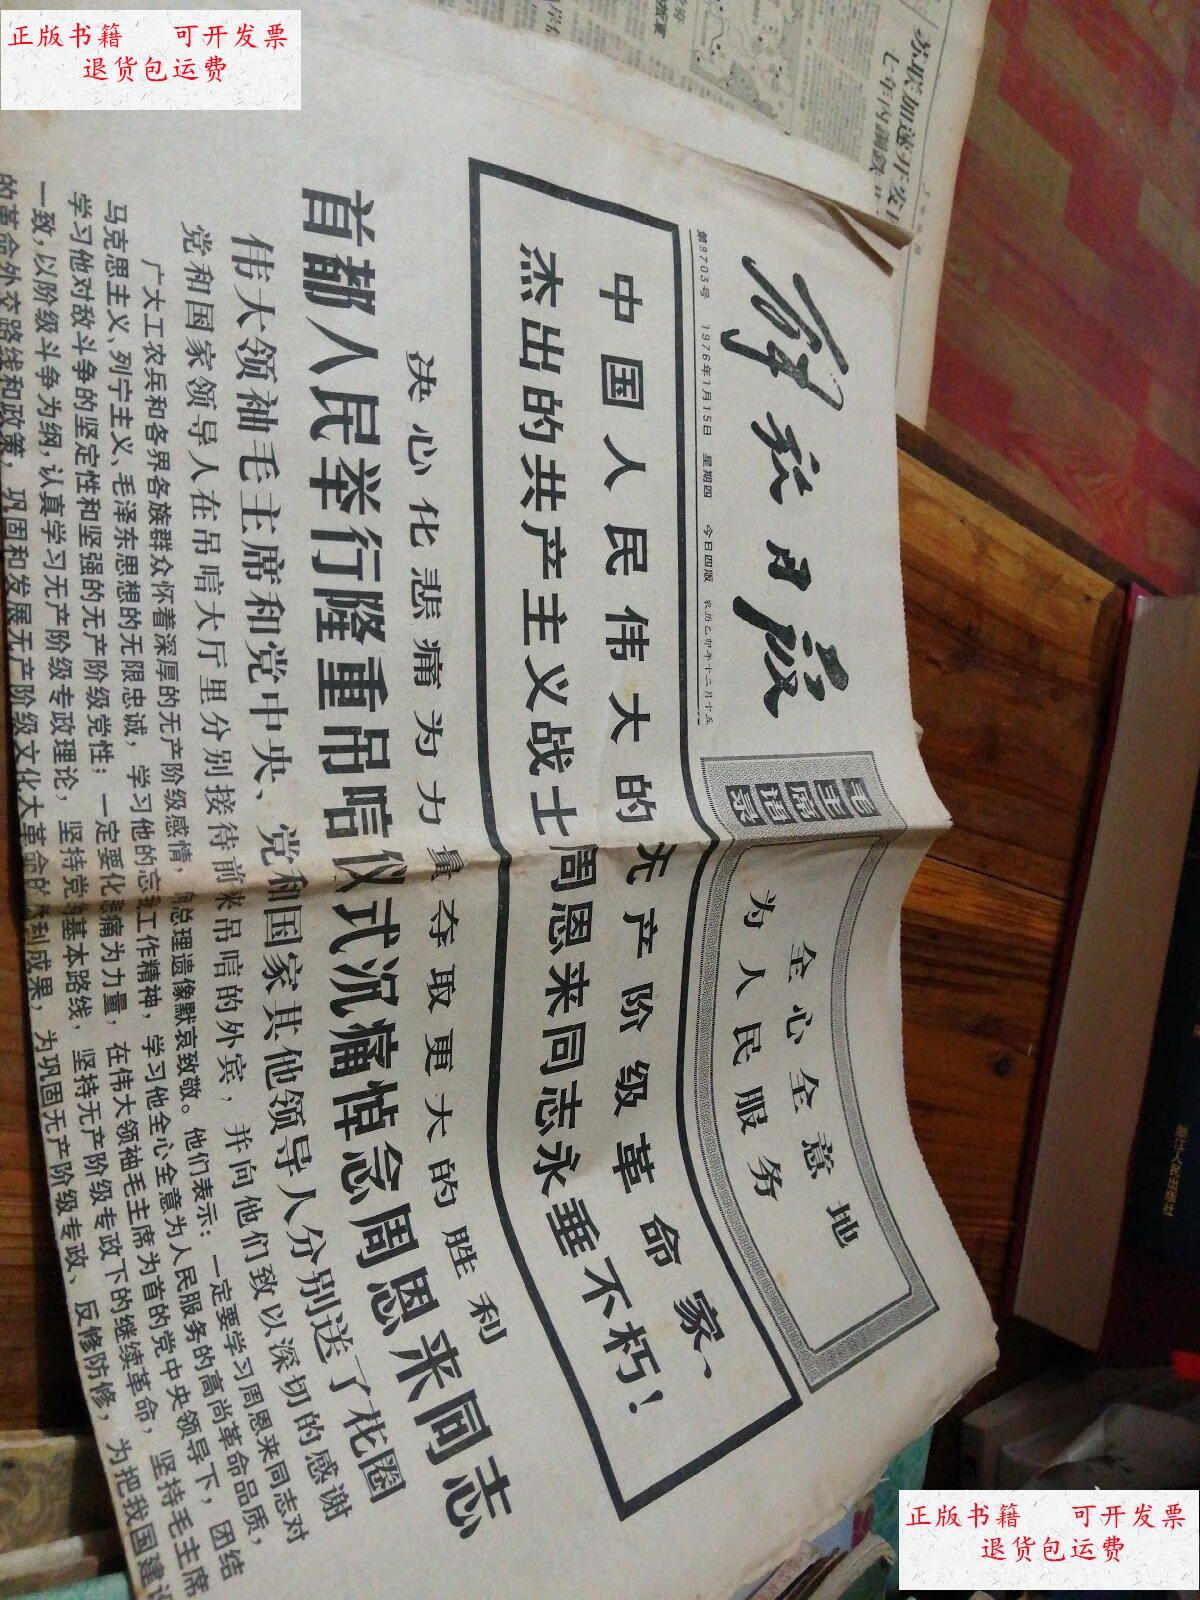 正版书籍 可开发票
退货包运费
解放日报
第9703号 1976年1月15日 星期四 今日四版 农历乙卯年十二月十五
毛主席语录
全心全意地
为人民服务
中国人民伟大的无产阶级革命家、
杰出的共产主义战士周恩来同志永垂不朽!
决心化悲痛为力量夺取更大的胜利
首都人民举行隆重吊唁仪式沉痛悼念周恩来同志
伟大领袖毛主席和党中央、党和国家其他领导人分别送了花圈
党和国家领导人在吊唁大厅里分别接待前来吊唁的外宾,并向他们致以深切的感谢
广大工农兵和各界各族群众怀着深厚的无产阶级感情,向总理遗像默哀致敬。他们表示:一定要学习周恩来同志对
马克思主义、列宁主义、毛泽东思想的无限忠诚,学习他的忘我工作精神,学习他全心全意为人民服务的高尚革命品质,
学习他对敌斗争的坚定性和坚强的无产阶级党性;一定要化悲痛为力量,在伟大领袖毛主席为首的党中央领导下,团结
一致,以阶级斗争为纲,认真学习无产阶级专政理论,坚持党的基本路线,坚持无产阶级专政下的继续革命,坚持毛主席
的革命外交路线和政策,巩固和发展无产阶级文化大革命的胜利成果,为巩固无产阶级专政、反修防修,为把我国建设
苏联加速开发
七年内
浙江人民出版社
正版书籍 可开发票
退货包运费